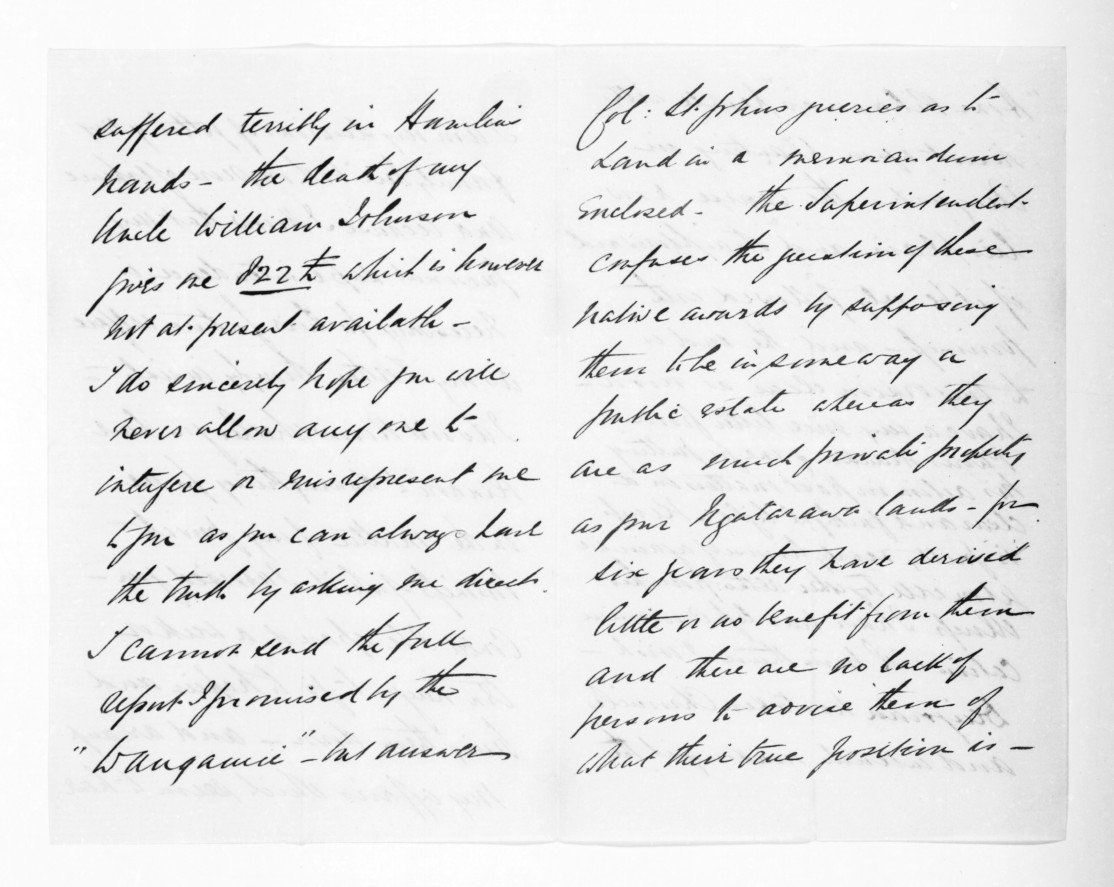 suffered terribly in Hamlins
hands - the death of my
Uncle William Johnson
gives me which is however
not at present available -
I do sincerely hope you will
never allow any one to
interfere or misrepresent me
to you as you can always have
the truth by asking me direct.
I cannot send the full
report I promised by the
"Wanganui" - but answer
Col: St. Johns queries as to
Land in a memorandum
enclosed - the Superintendent
confuses the question of these
native awards by supposing
them to be in some way a
public estate whereas they
are as much private property
as your Ngatarawa lands - for
six years they have derived
little or no benefit from them
and there are no lack of
persons to advise them of
what their true position is -